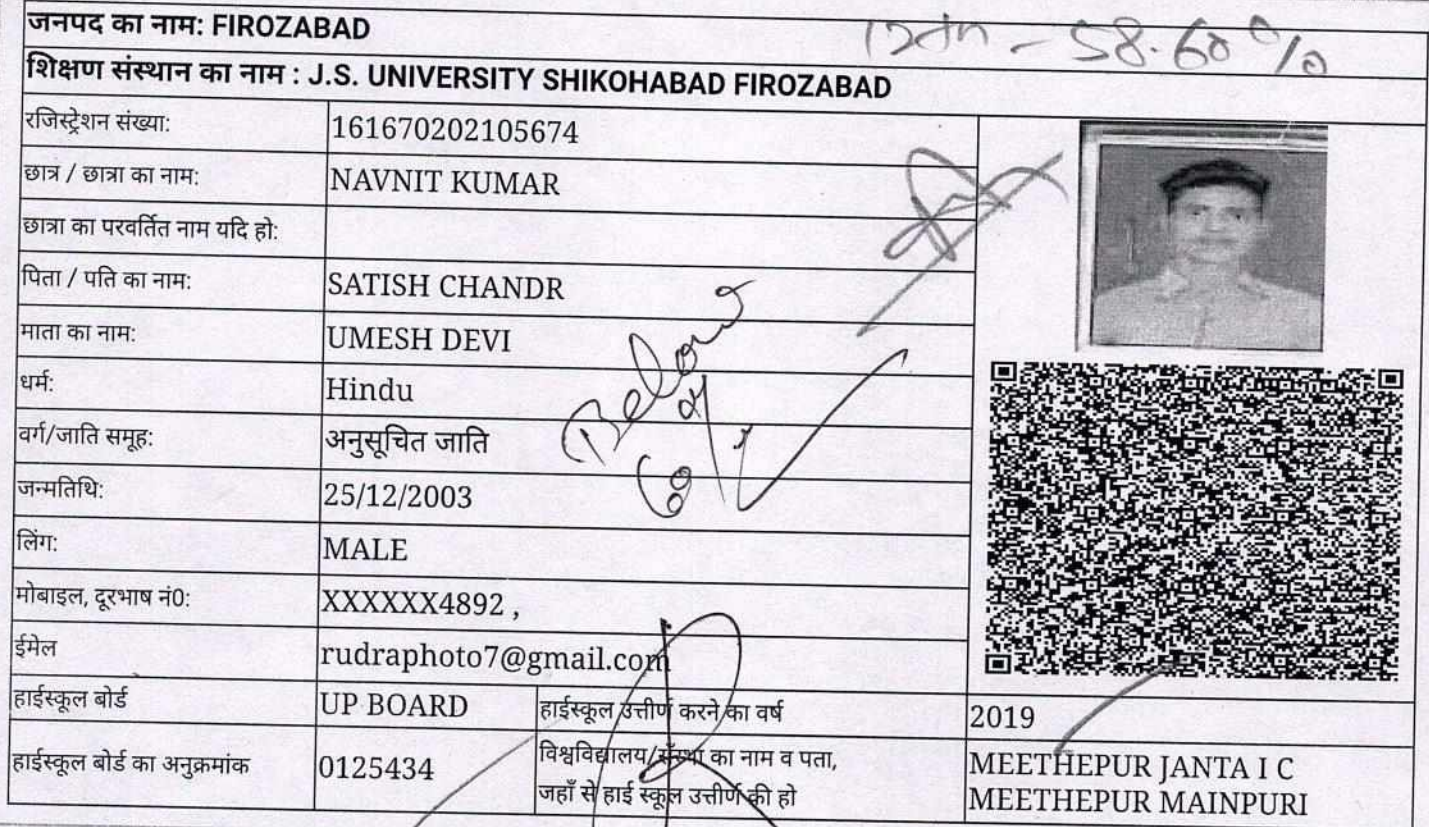 12th - 58.60%
जनपद का नाम: FIROZABAD
शिक्षण संस्थान का नाम : J.S. UNIVERSITY SHIKOHABAD FIROZABAD
रजिस्ट्रेशन संख्या: 161670202105674
छात्र / छात्रा का नाम: NAVNIT KUMAR
छात्रा का परवर्तित नाम यदि हो:
पिता / पति का नाम: SATISH CHANDR
माता का नाम: UMESH DEVI
धर्म: Hindu
वर्ग/जाति समूह: अनुसूचित जाति
जन्मतिथि: 25/12/2003
लिंग: MALE
मोबाइल, दूरभाष नं0: XXXXXX4892 ,
ईमेल rudraphoto7@gmail.com
हाईस्कूल बोर्ड UP BOARD हाईस्कूल उत्तीर्ण करने का वर्ष 2019
हाईस्कूल बोर्ड का अनुक्रमांक 0125434 विश्वविद्यालय/संस्था का नाम व पता, जहाँ से हाई स्कूल उत्तीर्ण की हो MEETHEPUR JANTA I C
MEETHEPUR MAINPURI